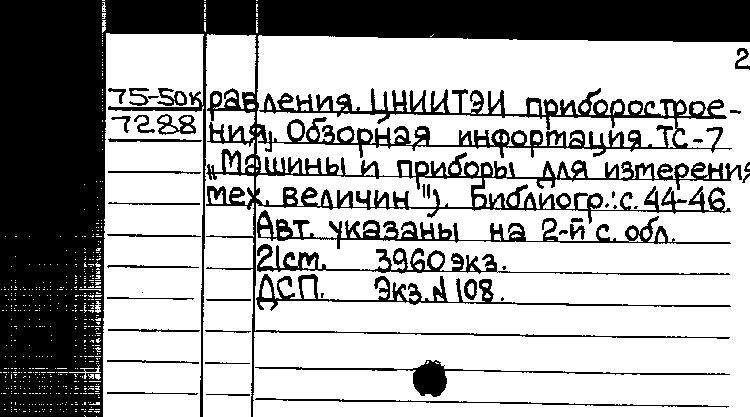 2
75-50к равления. ЦНИИТЭИ приборострое-
7288 ния„. Обзорная информация. ТС-7
„Машины и приборы для измерения
мех. величин"). Библиогр.: с. 44-46.
Авт. указаны на 2-й с. обл.
21ст. 3960 экз.
ДСП. Экз. N 108.